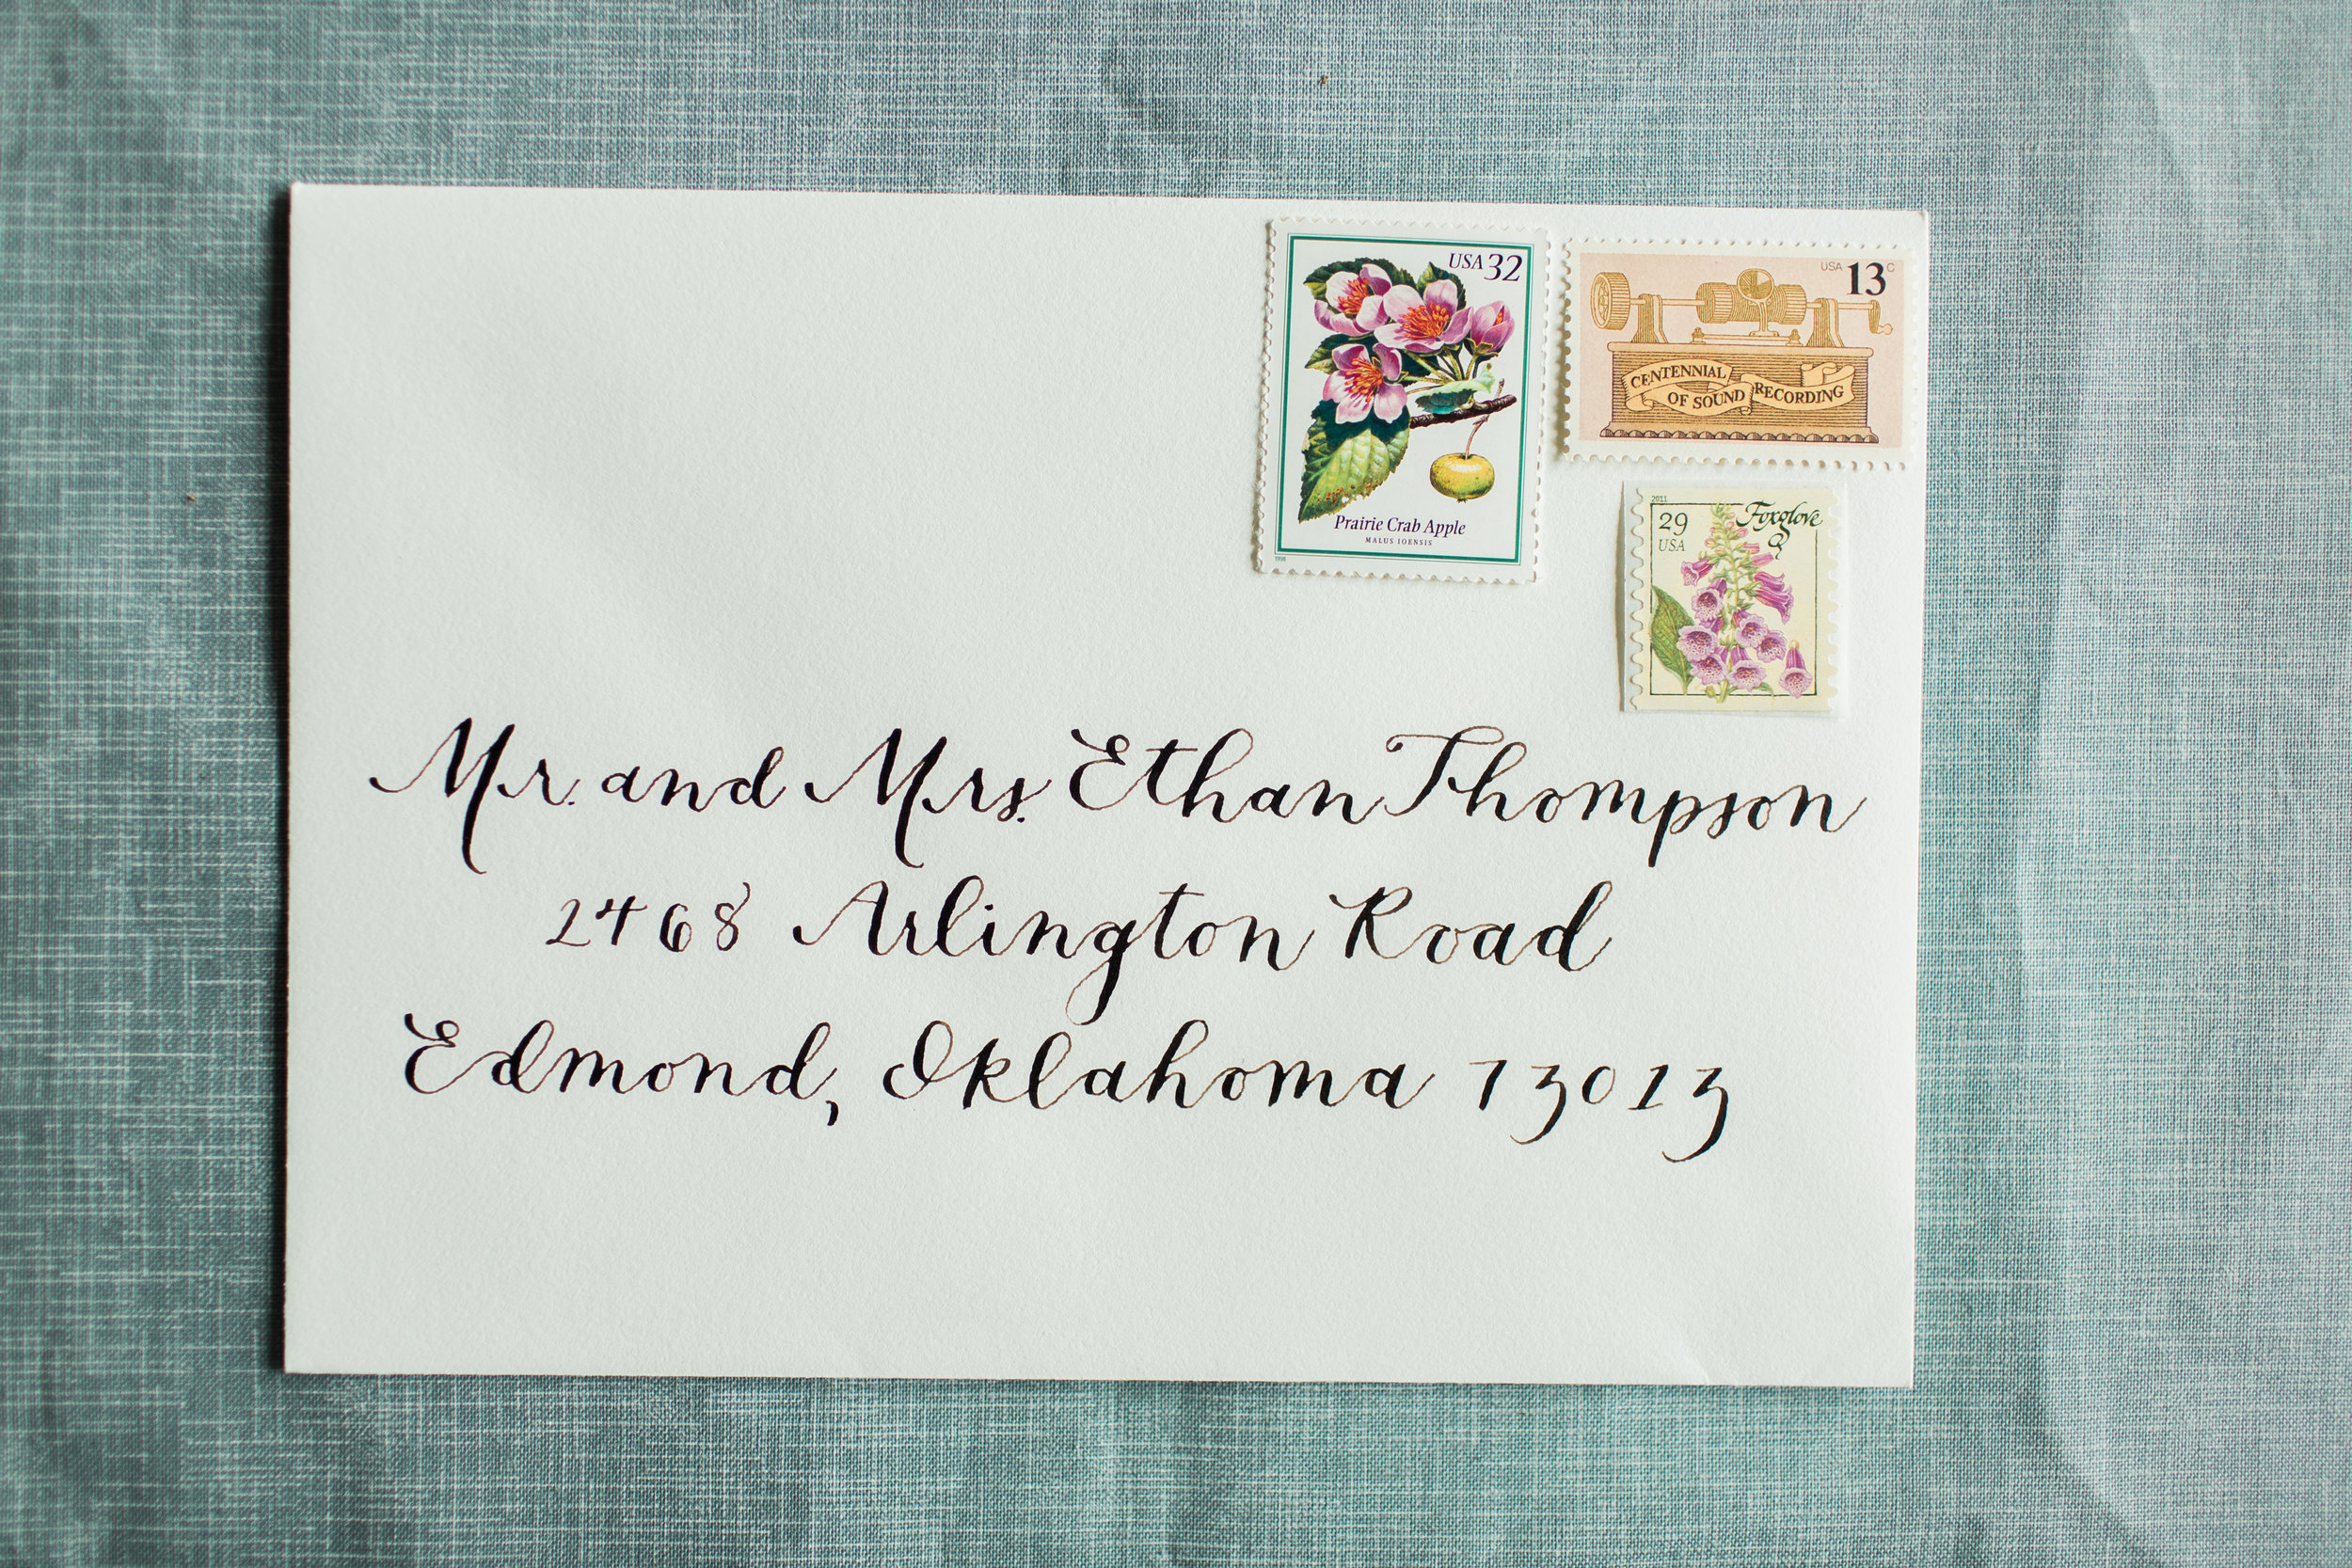 USA 32
Prairie Crab Apple
MALUS IOENSIS
1998
USA 13c
CENTENNIAL
OF SOUND RECORDING
2011
29 Foxglove
USA
Mr. and Mrs. Ethan Thompson
2468 Arlington Road
Edmond, Oklahoma 73013